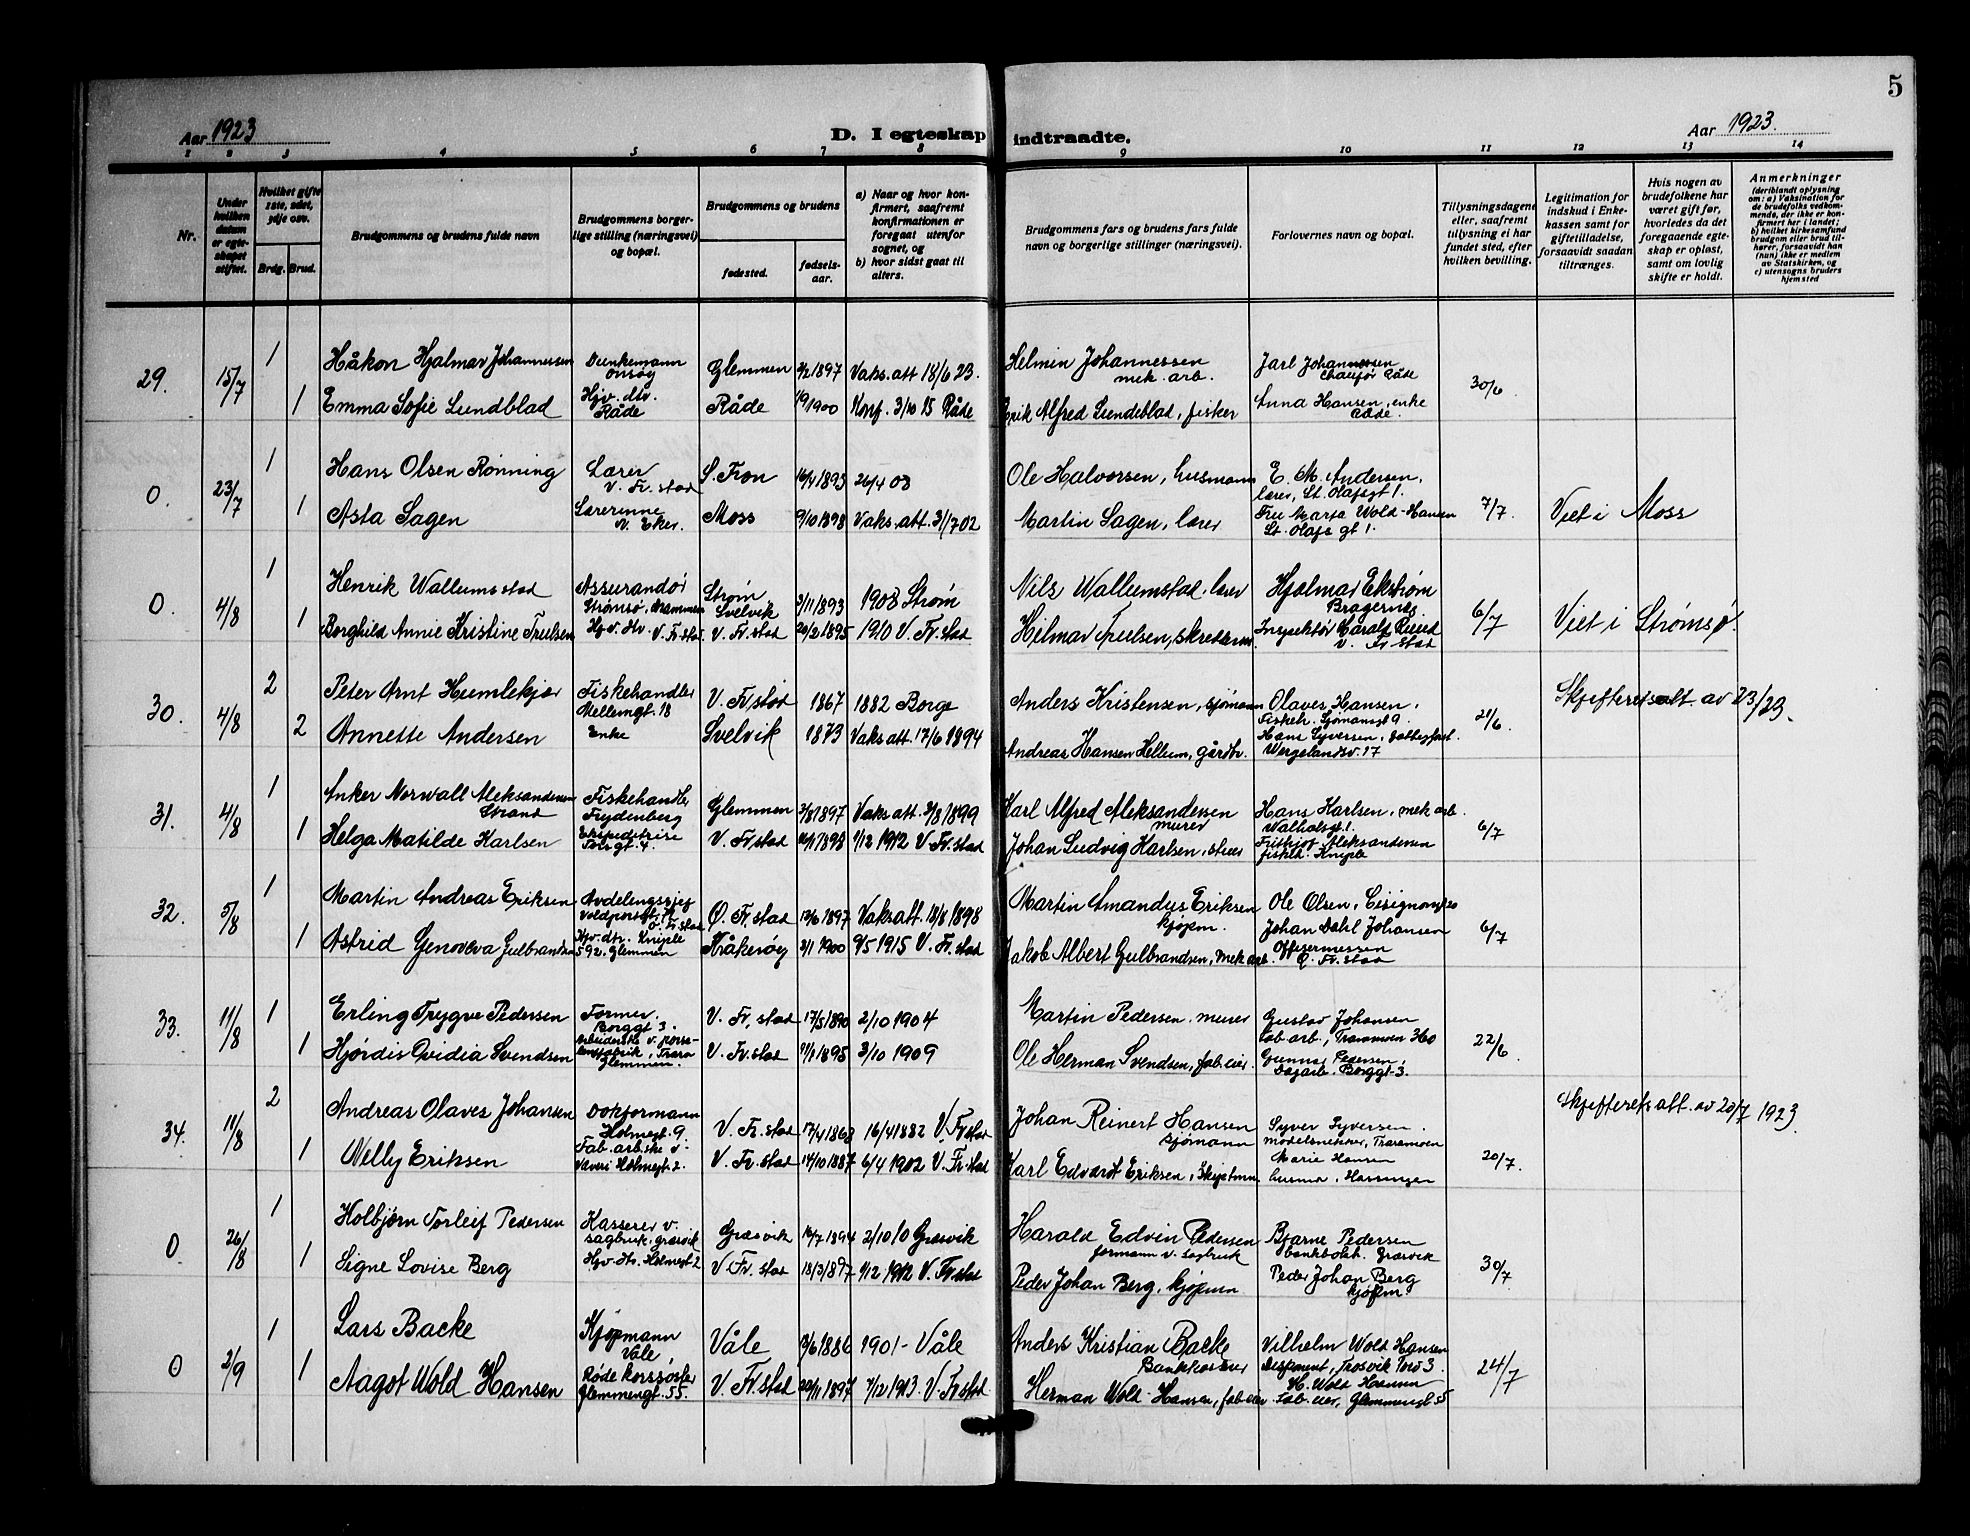 5
Aar 1923
D. I egteskap indtraadte.
Aar 1923.
1 2 3 4 5 6 7 8 9 10 11 12 13 14
Nr.
Under hvilken datum er egteskapet stiftet.
Hvilket gifte 1ste, 2det, 3dje osv.
Brdg. Brud.
Brudgommens og brudens fulde navn
Brudgommens borgerlige stilling (næringsvei) og bopæl.
Brudgommens og brudens
fødested.
fødselsaar.
a) Naar og hvor konfirmert, saafremt konfirmationen er foregaat utenfor sognet, og
b) hvor sidst gaat til alters.
Brudgommens fars og brudens fars fulde navn og borgerlige stillinger (næringsvei).
Forlovernes navn og bopæl.
Tillysningsdagene eller, saafremt tillysning ei har fundet sted, efter hvilken bevilling.
Legitimation for indskud i Enkekassen samt for giftetilladelse, forsaavidt saadan tiltrænges.
Hvis nogen av brudefolkene har været gift før, hvorledes da det foregaaende egteskap er opløst, samt om lovlig skifte er holdt.
Anmerkninger (deriblandt oplysning om: a) Vaksination for de brudefolks vedkommende, der ikke er konfirmert her i landet; b) hvilket kirkesamfund brudgom eller brud tilhører, forsaavidt han (hun) ikke er medlem av Statskirken, og c) utensogns bruders hjemsted
29. 15/7 1 Håkon Hjalmar Johannessen Onsøy Glemmen 1897 Vaks. att 18/6 23. Helmin Johannessen mek. arb. Jarl Johannessen Chaufør Råde 30/6
1 Emma Sofie Lundblad Hjv. dtr. Råde Råde 1900 Konf. 3/10 15 Råde Erik Alfred Lundeblad, fisker Anna Hansen, enke Råde.
0. 23/7 1 Hans Olsen Rønning Lærer V. Fr. stad S. Fron 16/4 1893 26/4 08 Ole Halvorsen, husmann E. M. Andersen, lærer, St. Olafsgt 1. 7/7. Viet i Moss
1 Asta Sagen Lærerinne N. Eker. Moss 9/10 1898 Vaks. att. 31/7 02 Martin Sagen, lærer Fru Marta Wold-Hansen St. Olafs gt 1.
0. 4/8 1 Henrik Wallumstad Assurandør Strømsø, Drammen Strøm, Svelvik 3/11 1893 1908 Strøm Nils Wallumstad, lærer Hjalmar Ekstrøm Bragernes 6/7 Viet i Strømsø.
1 Borghild Annie Kristine Truelsen Hjv. dtr. V. Fr. stad V. Fr. stad 20/2 1895 1910 V. Fr. stad Hilmar Truelsen, skredderm. Inspektør Harald Ruud V. Fr. stad
30. 4/8 2 Peter Arnt Humlekjær Fiskehandler Mellemgt. 18 V. Fr. stad 1867 1882 Borge Anders Kristensen, sjømann Olaves Hansen, Fiskeh. Sjømansgt 9. 21/6. Skifteretsatt. av 23/23.
2 Annette Andersen Enke Svelvik 1873 Vaks att. 17/6 1894 Andreas Hansen Hellum, gårdbr. Hans Syversen, Wergelandsv. 17
31. 4/8 1 Anker Norwall Aleksandersen Strand Fiskehandler Frydenberg Glemmen 3/8 1897 Vaks att. 2/8 1899 Karl Alfred Aleksandersen murer Hans Karlsen, mek arb. Valholsgt. 1. 6/7
1 Helga Matilde Karlsen Ekspeditrise Torvgt. 4. V. Fr. stad 1898 1/12 1912 V. Fr. stad Johan Ludvig Karlsen, stuer Fritjof Aleksandersen fiskeh. Kniple
32. 5/8 1 Martin Andreas Eriksen Avdelingssjef Voldportgt. Ø. Fr. stad Ø. Fr. stad 12/6 1897 Vaks att. 18/8 1898 Martin Amandus Eriksen kjøpm. Ole Olsen, 6/7
1 Astrid Genoveva Gulbrandsen Hjv. dtr. Kniple 592. Glemmen Kråkerøy 2/1 1900 9/5 1915 V. Fr. stad Jakob Albert Gulbrandsen, mek arb. Johan Dahl Johansen Offisermessen Ø. Fr. stad
33. 11/8 1 Erling Trygve Pedersen Former. Borggt 3. V. Fr. stad 17/5 1890 2/10 1904 Martin Pedersen, murer Gustav Johansen Fab. arb., Traramoen 360 22/6.
1 Hjørdis Ovidia Svendsen Arbeiderske v. Trara Glemmen. V. Fr. stad 1895 3/10 1909 Ole Herman Svendsen, fab. eier. Gunnar Pedersen, Dagarb. Borggt. 3.
34. 11/8 2 Andreas Olaves Johansen Dokformann Holmegt. 9. V. Fr. stad 17/4 1868 16/4 1882 V. Fr stad Johan Reinert Hansen sjømann Syver Syversen, modelsnekker, Traramoen 20/7. Skifterets att. av 20/7 1923.
1 Welly Eriksen Fab. arb. ske v. Væveri Holmegt. 2. V. Fr. stad 14/10 1887 6/4 1902 V. Fr. stad Karl Edvardt Eriksen, Skipstmm. Marie Hansen husmor, Hassingen
0 26/8 1 Kolbjørn Torleif Pedersen Kasserer v. sagbruk. Græsvik Græsvik 16/7 1894 2/10 10 Græsvik Harald Edvin Pedersen formann v. Sagbruk Bjarne Pedersen bankbokh. Græsvik 30/7.
1 Signe Lovise Berg Hjv. dtr. Holmegt 2 V. Fr. stad 18/3 1897 1/12 1912 V. Fr. stad Peder Johan Berg, kjøpmn Peder Johan Berg kjøpm.
0 2/9 1 Lars Backe Kjøpmann Våle Våle 1886 1901 - Våle Anders Kristian Backe Bankkasserer Vilhelm Wold Hansen Disponent, Trosvik Torv 3. 24/7
1 Aagot Wold Hansen Røde Korssøster Glemmengt. 55. V. Fr. stad 20/11 1897 7/12 1913. V. Fr stad Herman Wold-Hansen, fab. eier H. Wold Hansen Fab. eier, Glemmengt 55